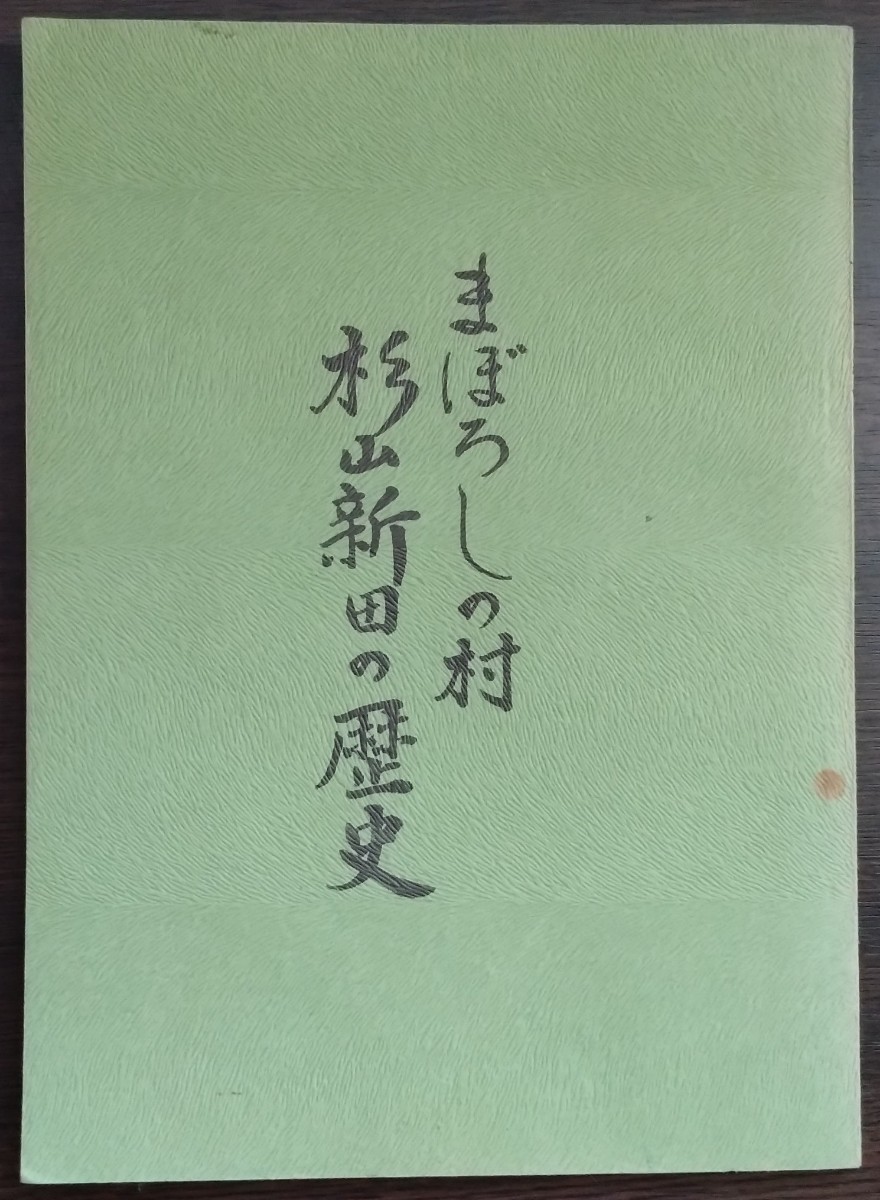 まぼろしの村
杉山新田の歴史